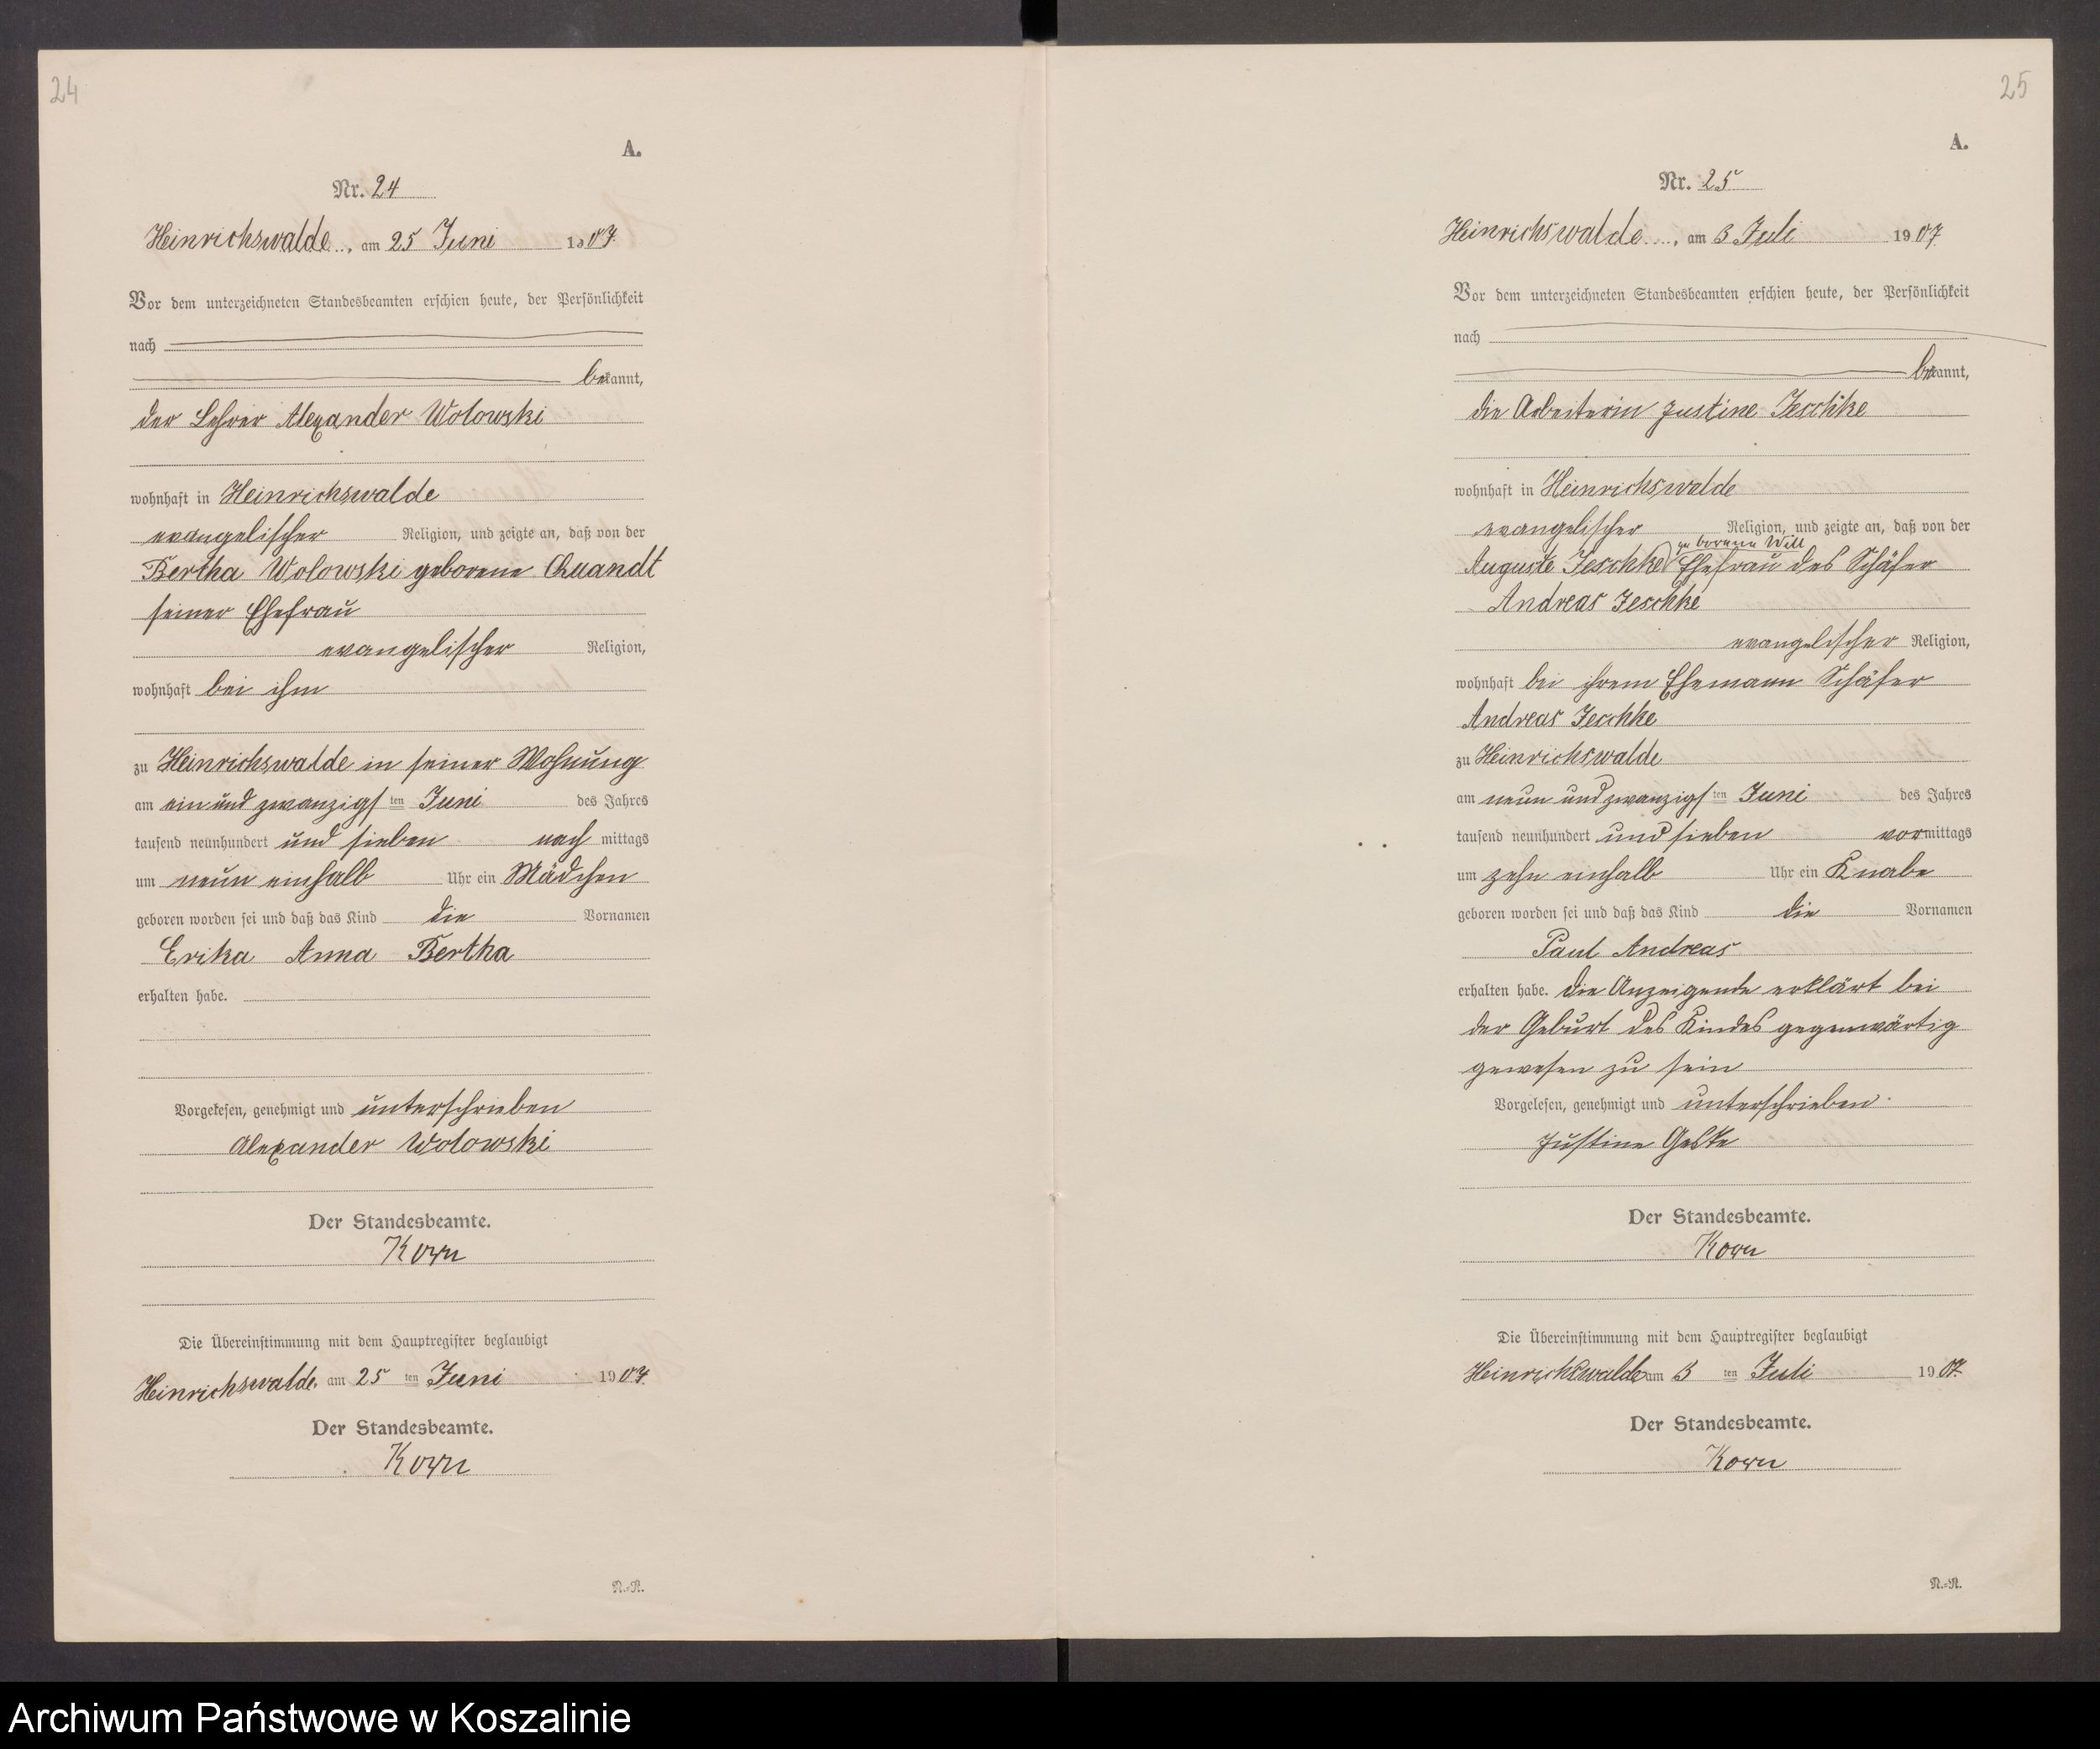 24
A.
Nr. 24
Heinrichswalde, am 25 Juni 1907.
Vor dem unterzeichneten Standesbeamten erschien heute, der Persönlichkeit
nach
bekannt,
der Lehrer Alexander Wolowski
wohnhaft in Heinrichswalde
evangelischer Religion, und zeigte an, daß von der
Bertha Wolowski geborene Quandt
seiner Ehefrau
evangelischer Religion,
wohnhaft bei ihm
zu Heinrichswalde in seiner Wohnung
am ein und zwanzigsten Juni des Jahres
tausend neunhundert und sieben nach mittags
um neun einhalb Uhr ein Mädchen
geboren worden sei und daß das Kind die Vornamen
Erika Anna Bertha
erhalten habe.
Vorgelesen, genehmigt und unterschrieben
Alexander Wolowski
Der Standesbeamte.
Korn
Die Übereinstimmung mit dem Hauptregister beglaubigt
Heinrichswalde, am 25 ten Juni 1907.
Der Standesbeamte.
Korn
N.-R.
25
A.
Nr. 25
Heinrichswalde, am 3 Juli 1907
Vor dem unterzeichneten Standesbeamten erschien heute, der Persönlichkeit
nach
bekannt,
die Arbeiterin Justine Jeschke
wohnhaft in Heinrichswalde
evangelischer Religion, und zeigte an, daß von der
geborene Will
Auguste Jeschke Ehefrau des Schäfer
Andreas Jeschke
evangelischer Religion,
wohnhaft bei ihrem Ehemann Schäfer
Andreas Jeschke
zu Heinrichswalde
am neun und zwanzigsten Juni des Jahres
tausend neunhundert und sieben vormittags
um zehn einhalb Uhr ein Knabe
geboren worden sei und daß das Kind die Vornamen
Paul Andreas
erhalten habe. Die Anzeigende erklärt bei
der Geburt des Kindes gegenwärtig
gewesen zu sein
Vorgelesen, genehmigt und unterschrieben.
Justine Geske
Der Standesbeamte.
Korn
Die Übereinstimmung mit dem Hauptregister beglaubigt
Heinrichswalde am 3 ten Juli 1907.
Der Standesbeamte.
Korn
N.-R.
Archiwum Państwowe w Koszalinie